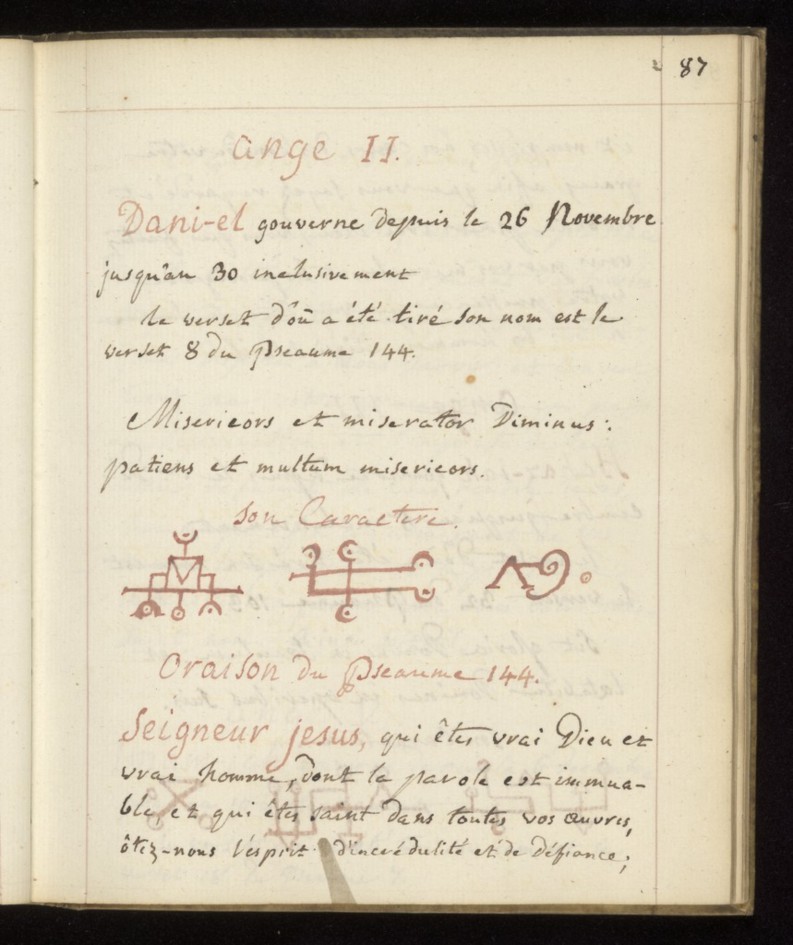 87
ange II.
Dani-el gouverne depuis le 26 Novembre
jusqu'au 30 inclusivement
le verset d'où a été tiré son nom est le
verset 8 du Pseaume 144.
Misericors et miserator Diminus:
patiens et multum misericors.
son Caractere.
Oraison du Pseaume 144.
Seigneur jesus, qui êtes vrai Dieu et
vrai homme, dont la parole est immua-
ble, et qui êtes saint dans toutes vos œuvres,
ôtez-nous l'ésprit d'incrédulité et de défiance;